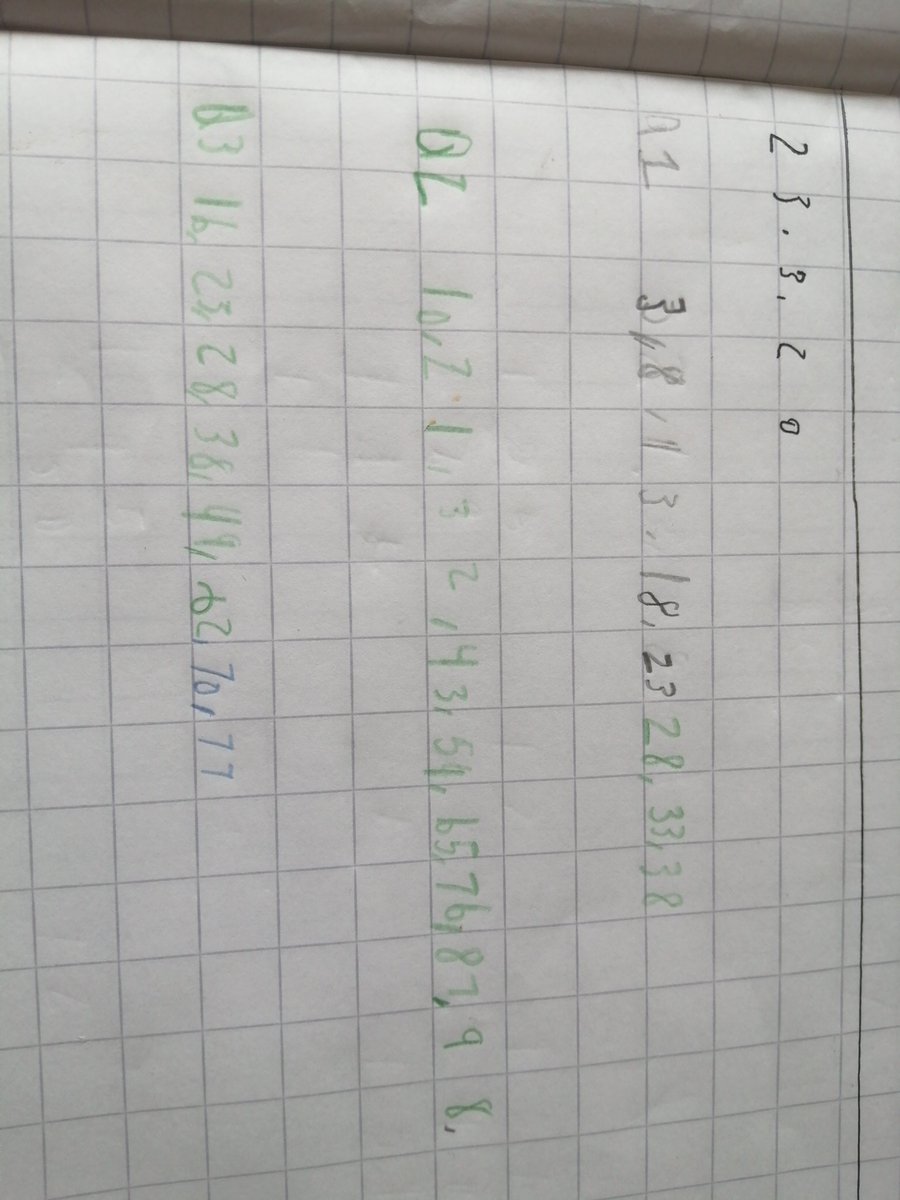 23.3.20
a1 3,8,13.18,23 28,33,38
a2 10,21,32,43,54,65,76,87,98,
a3 16,23,28,38,44,62,70,77